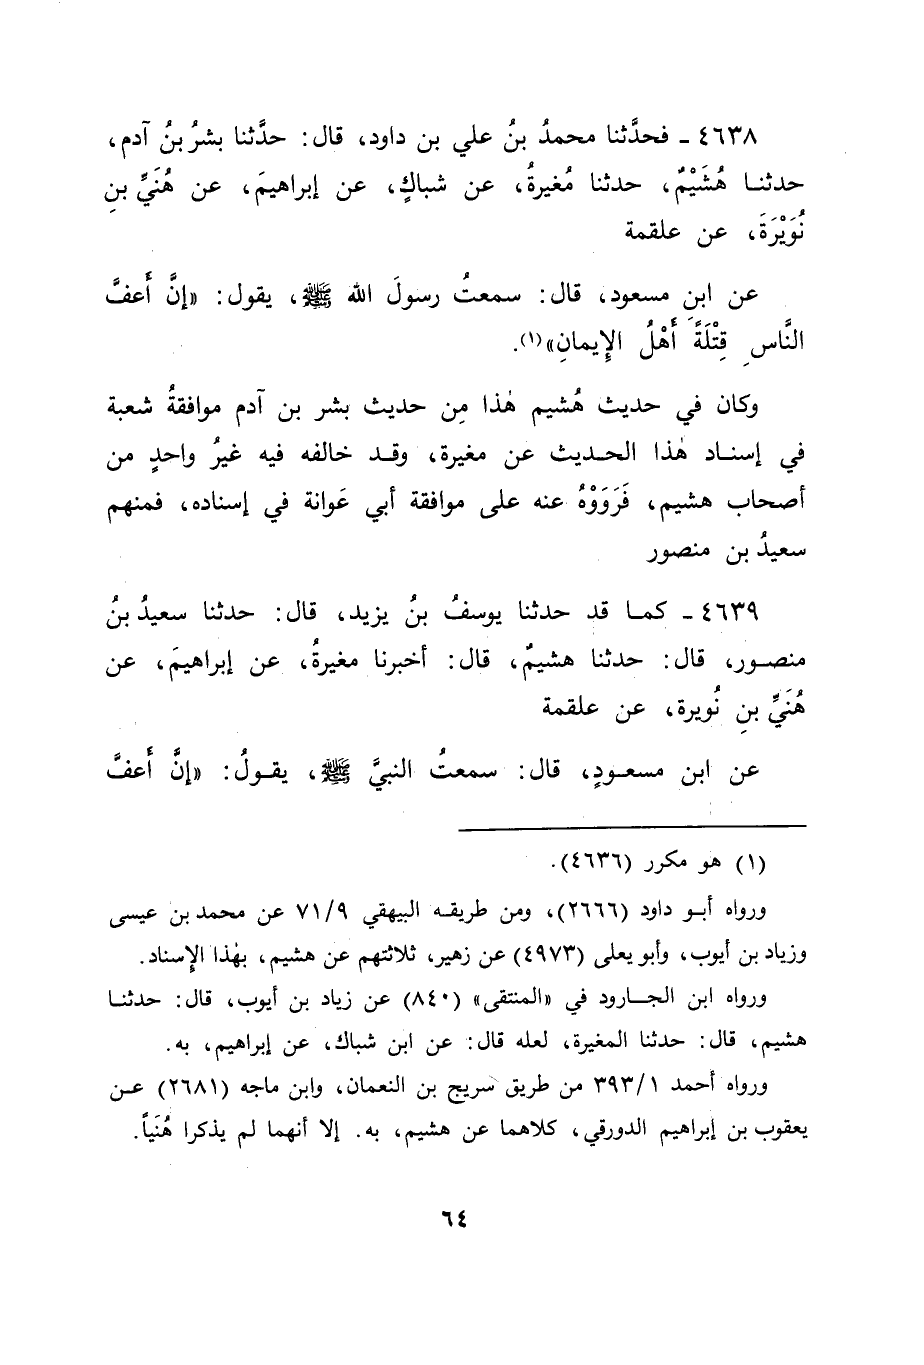 ٤٦٣٨ - فحدَّثنا محمدُ بنُ علي بن داود، قال: حدَّثنا بشرُ بنُ آدم،
حدثنا هُشَيْمٌ، حدثنا مُغيرةُ، عن شباكٍ، عن إبراهيمَ، عن هُنَيٍّ بنِ
نُوَيْرَةَ، عن علقمة
عن ابنِ مسعود، قال: سمعتُ رسولَ الله ﷺ، يقول: «إنَّ أَعفَّ
النَّاسِ قِتْلَةً أَهْلُ الإِيمانِ»(١).
وكان في حديث هُشيم هٰذا مِن حديث بشر بن آدم موافقةُ شعبة
في إسناد هٰذا الحديث عن مغيرة، وقد خالفه فيه غيرُ واحدٍ من
أصحاب هشيم، فَرَوَوْهُ عنه على موافقة أبي عَوانة في إسناده، فمنهم
سعيدُ بن منصور
٤٦٣٩ - كما قد حدثنا يوسفُ بنُ يزيد، قال: حدثنا سعيدُ بنُ
منصور، قال: حدثنا هشيمٌ، قال: أخبرنا مغيرةُ، عن إبراهيمَ، عن
هُنَيٍّ بنِ نُويرة، عن علقمة
عن ابن مسعودٍ، قال: سمعتُ النبيَّ ﷺ، يقولُ: «إنَّ أَعفَّ
(١) هو مكرر (٤٦٣٦).
ورواه أبو داود (٢٦٦٦)، ومن طريقه البيهقي ٧١/٩ عن محمد بن عيسى
وزياد بن أيوب، وأبو يعلى (٤٩٧٣) عن زهير، ثلاثتهم عن هشيم، بهٰذا الإِسناد.
ورواه ابن الجارود في «المنتقى» (٨٤٠) عن زياد بن أيوب، قال: حدثنا
هشيم، قال: حدثنا المغيرة، لعله قال: عن ابن شباك، عن إبراهيم، به.
ورواه أحمد ٣٩٣/١ من طريق سريج بن النعمان، وابن ماجه (٢٦٨١) عن
يعقوب بن إبراهيم الدورقي، كلاهما عن هشيم، به. إلا أنهما لم يذكرا هُنَياً.
٦٤